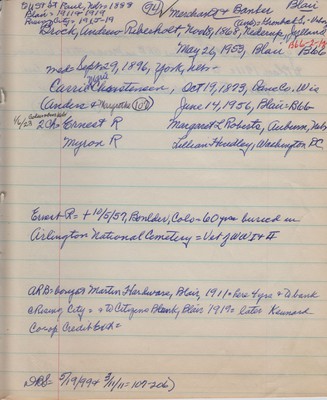 St Paul, Nebr = 1888
Blair = 1911 + 1919
Rising City = 1915-19
94
Merchant & Banker Blair
Brock, Andrew Ribenholt, Nov 13, 1868, Nederup, Jylland
May 26, 1953, Blair B66
md = Sept 29, 1896, York, Nebr
Carrie Christensen, Oct 19, 1873, Dane Co. Wis
Anders & Margrethe 102 June 14, 1956, Blair = B66
2 Ch = Ernest R Margaret L Roberts, Auburn, Nebr
Myron R Lillian Hendley, Washington DC
Ernest R = + 10/5/57, Boulder, Colo = 60 yrs buried in
Arlington National Cemetery = Vet of WW I + II
ARB = bought Martin Hardware, Blair, 1911 = here 4 yrs = to bank
@ Rising City = + to Citizens Bank, Blair 1919 = later Kennard
Co-op Credit
5/19/99 + 3/11/11 = 107-206)